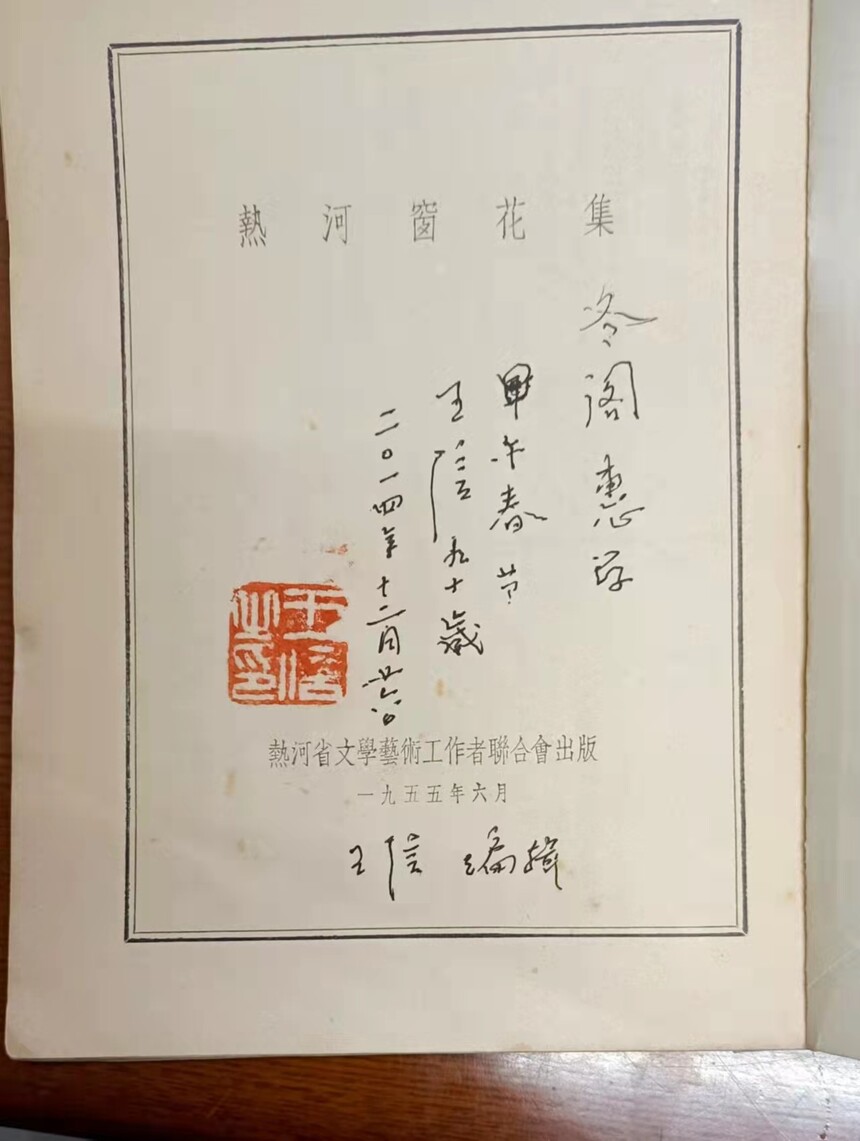 熱河窗花集
冷阁惠存
甲午春节
王信九十歲
二〇一四年十二月廿六日
王信之印
熱河省文學藝術工作者聯合會出版
一九五五年六月
王信 编辑